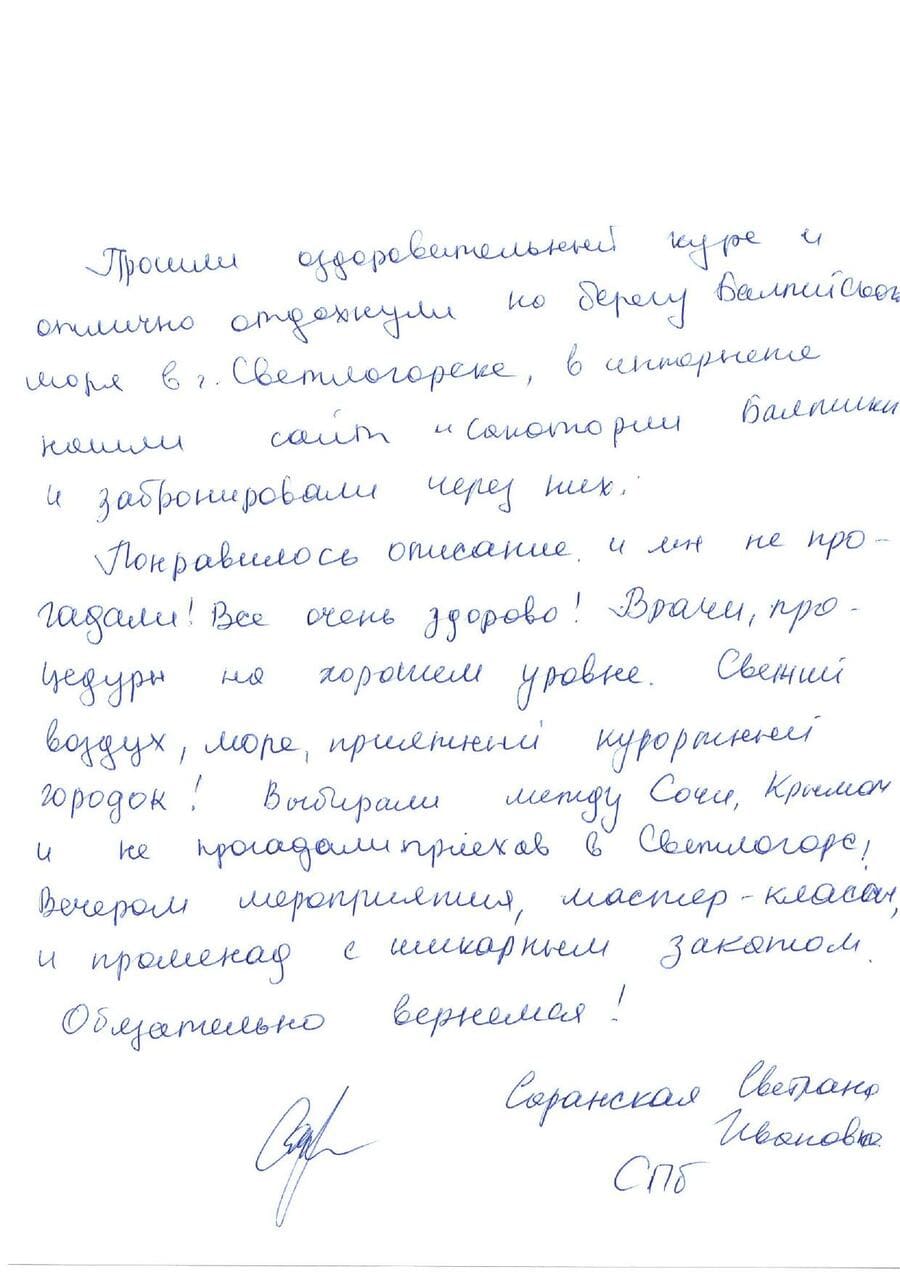 Прошли оздоровительный курс и
отлично отдохнули на берегу Балтийского
моря в г. Светлогорске, в интернете
нашли сайт "Санатории Балтики
и забронировали через них.
Понравилось описание и мы не про-
гадали! Все очень здорово! Врачи, про-
цедуры на хорошем уровне. Свежий
воздух, море, приятный курортный
городок! Выбирали между Сочи, Крымом
и не прогадали приехав в Светлогорс!
Вечером мероприятия, мастер-классы,
и променад с шикарным закатом.
Обязательно вернемся!
Саранская Светлана
Ивановна
СПб